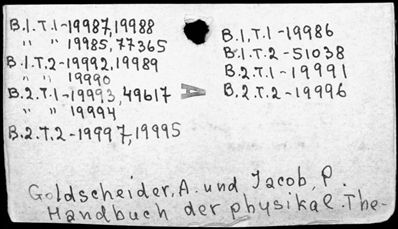 B.1.T.1-19987,19988
" " 19985,77365
B.1.T.2-19992,19989
" " 19990
B.2.T.1-19993,49617
" " 19994
B.2.T.2-19997,19995
B.1.T.1-19986
B.1.T.2-51038
B.2.T.1-19991
B.2.T.2-19996
A
Goldscheider, A. und Jacob, P.
Handbuch der physikal. The-